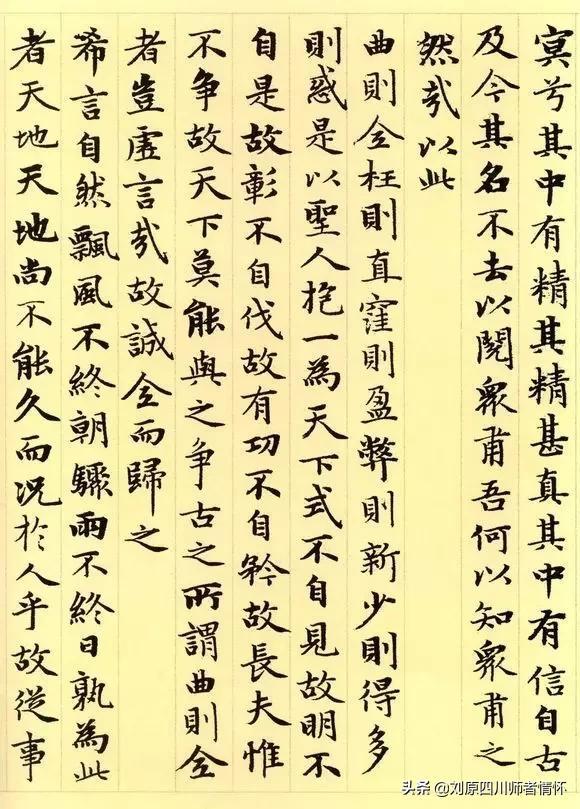 冥兮其中有精其精甚真其中有信自古
及今其名不去以閱眾甫吾何以知眾甫之
然哉以此
曲則全枉則直窪則盈弊則新少則得多
則惑是以聖人抱一為天下式不自見故明不
自是故彰不自伐故有功不自矜故長夫惟
不争故天下莫能與之争古之所謂曲則全
者豈虛言哉故誠全而歸之
希言自然飄風不終朝驟雨不終日孰為此
者天地天地尚不能久而况於人乎故從事
头条 @刘原四川师者情怀